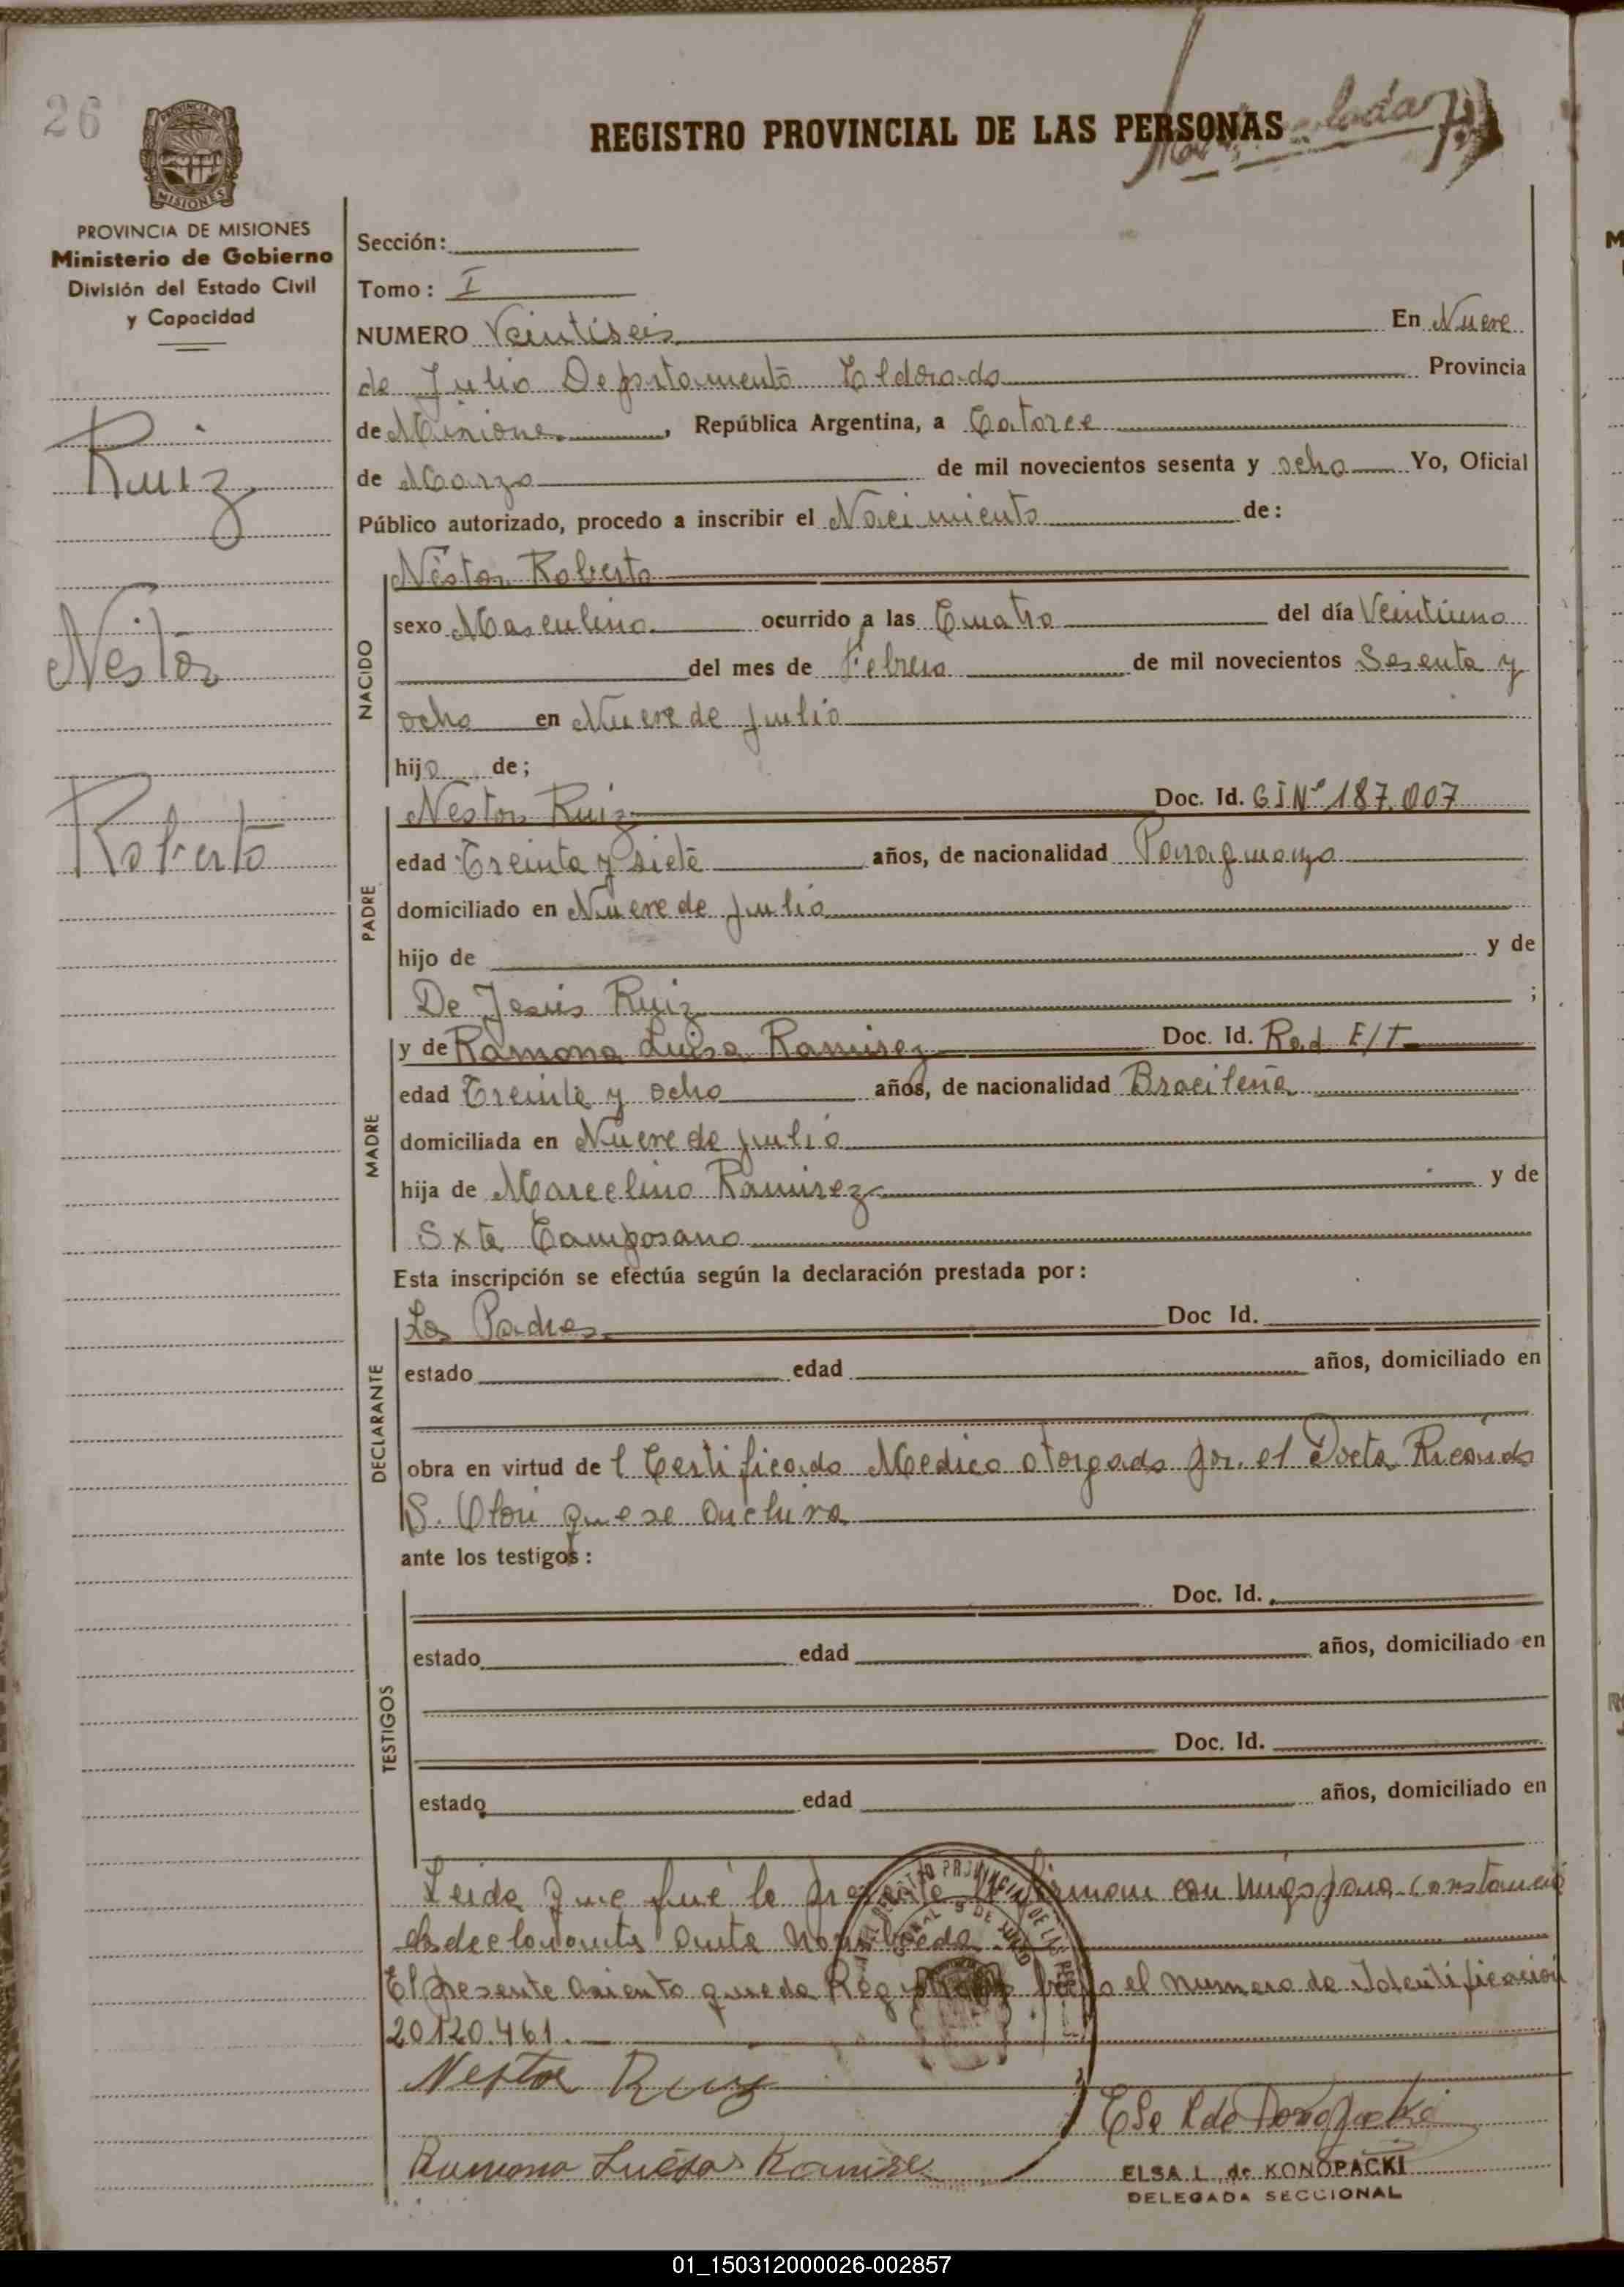 26
REGISTRO PROVINCIAL DE LAS PERSONAS
PROVINCIA DE MISIONES
Ministerio de Gobierno
División del Estado Civil
y Capacidad
Ruiz
Néstor
Roberto
Sección:
Tomo: I
NUMERO Veintiseis En Nueve
de Julio Departamento Eldorado Provincia
de Misiones, República Argentina, a Catorce
de Marzo de mil novecientos sesenta y ocho Yo, Oficial
Público autorizado, procedo a inscribir el Nacimiento de:
NACIDO
Néstor Roberto
sexo Masculino ocurrido a las Cuatro del día Veintiuno
del mes de Febrero de mil novecientos Sesenta y
ocho en Nueve de Julio
hijo de;
PADRE
Nestor Ruiz Doc. Id. CI Nº 187.007
edad Treinta y siete años, de nacionalidad Paraguaya
domiciliado en Nueve de Julio
hijo de y de
De Jesús Ruiz ;
MADRE
y de Ramona Luisa Ramirez Doc. Id. Rad. E/T
edad Treinta y ocho años, de nacionalidad Bracileña
domiciliada en Nueve de Julio
hija de Marcelino Ramirez y de
Sxta Camposano
Esta inscripción se efectúa según la declaración prestada por:
DECLARANTE
Los Padres Doc Id.
estado edad años, domiciliado en
obra en virtud de l Certificado Medico otorgado por el Doctor Ricardo
S. que se archiva
ante los testigos:
TESTIGOS
Doc. Id.
estado edad años, domiciliado en
Doc. Id.
estado edad años, domiciliado en
Leida que fué la presente firman con migo para constancia
declarante ante nombrado
El presente asiento queda Registrado bajo el numero de Identificacion
20120.461.
Nestor Ruiz
Ramona Luisa Ramire
ELSA L. de KONOPACKI
DELEGADA SECCIONAL
01_150312000026-002857